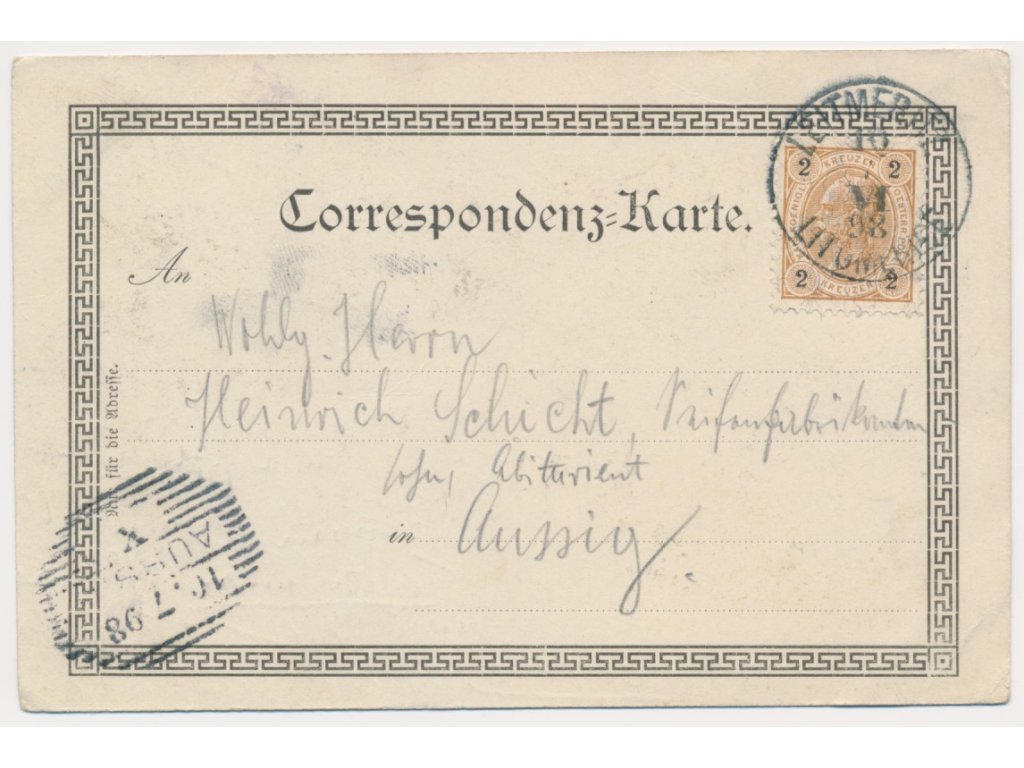 Correspondenz-Karte.
LEITMERITZ
10
98
2 KREUZER 2
2 KREUZER 2
An
Wohlg. Herrn
Heinrich Schicht, Seifenfabrikanten
sohn, Abiturient
in Aussig.
Nur für die Adresse.
AUSS
10.7.98